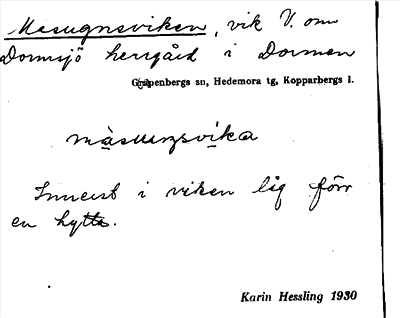 Masugnsviken, vik V. om
Dormsjö herrgård i Dormen
Garpenbergs sn, Hedemora tg, Kopparbergs l.
màsuŋsvika
Innerst i viken låg förr
en hytta.
Karin Hessling 1930